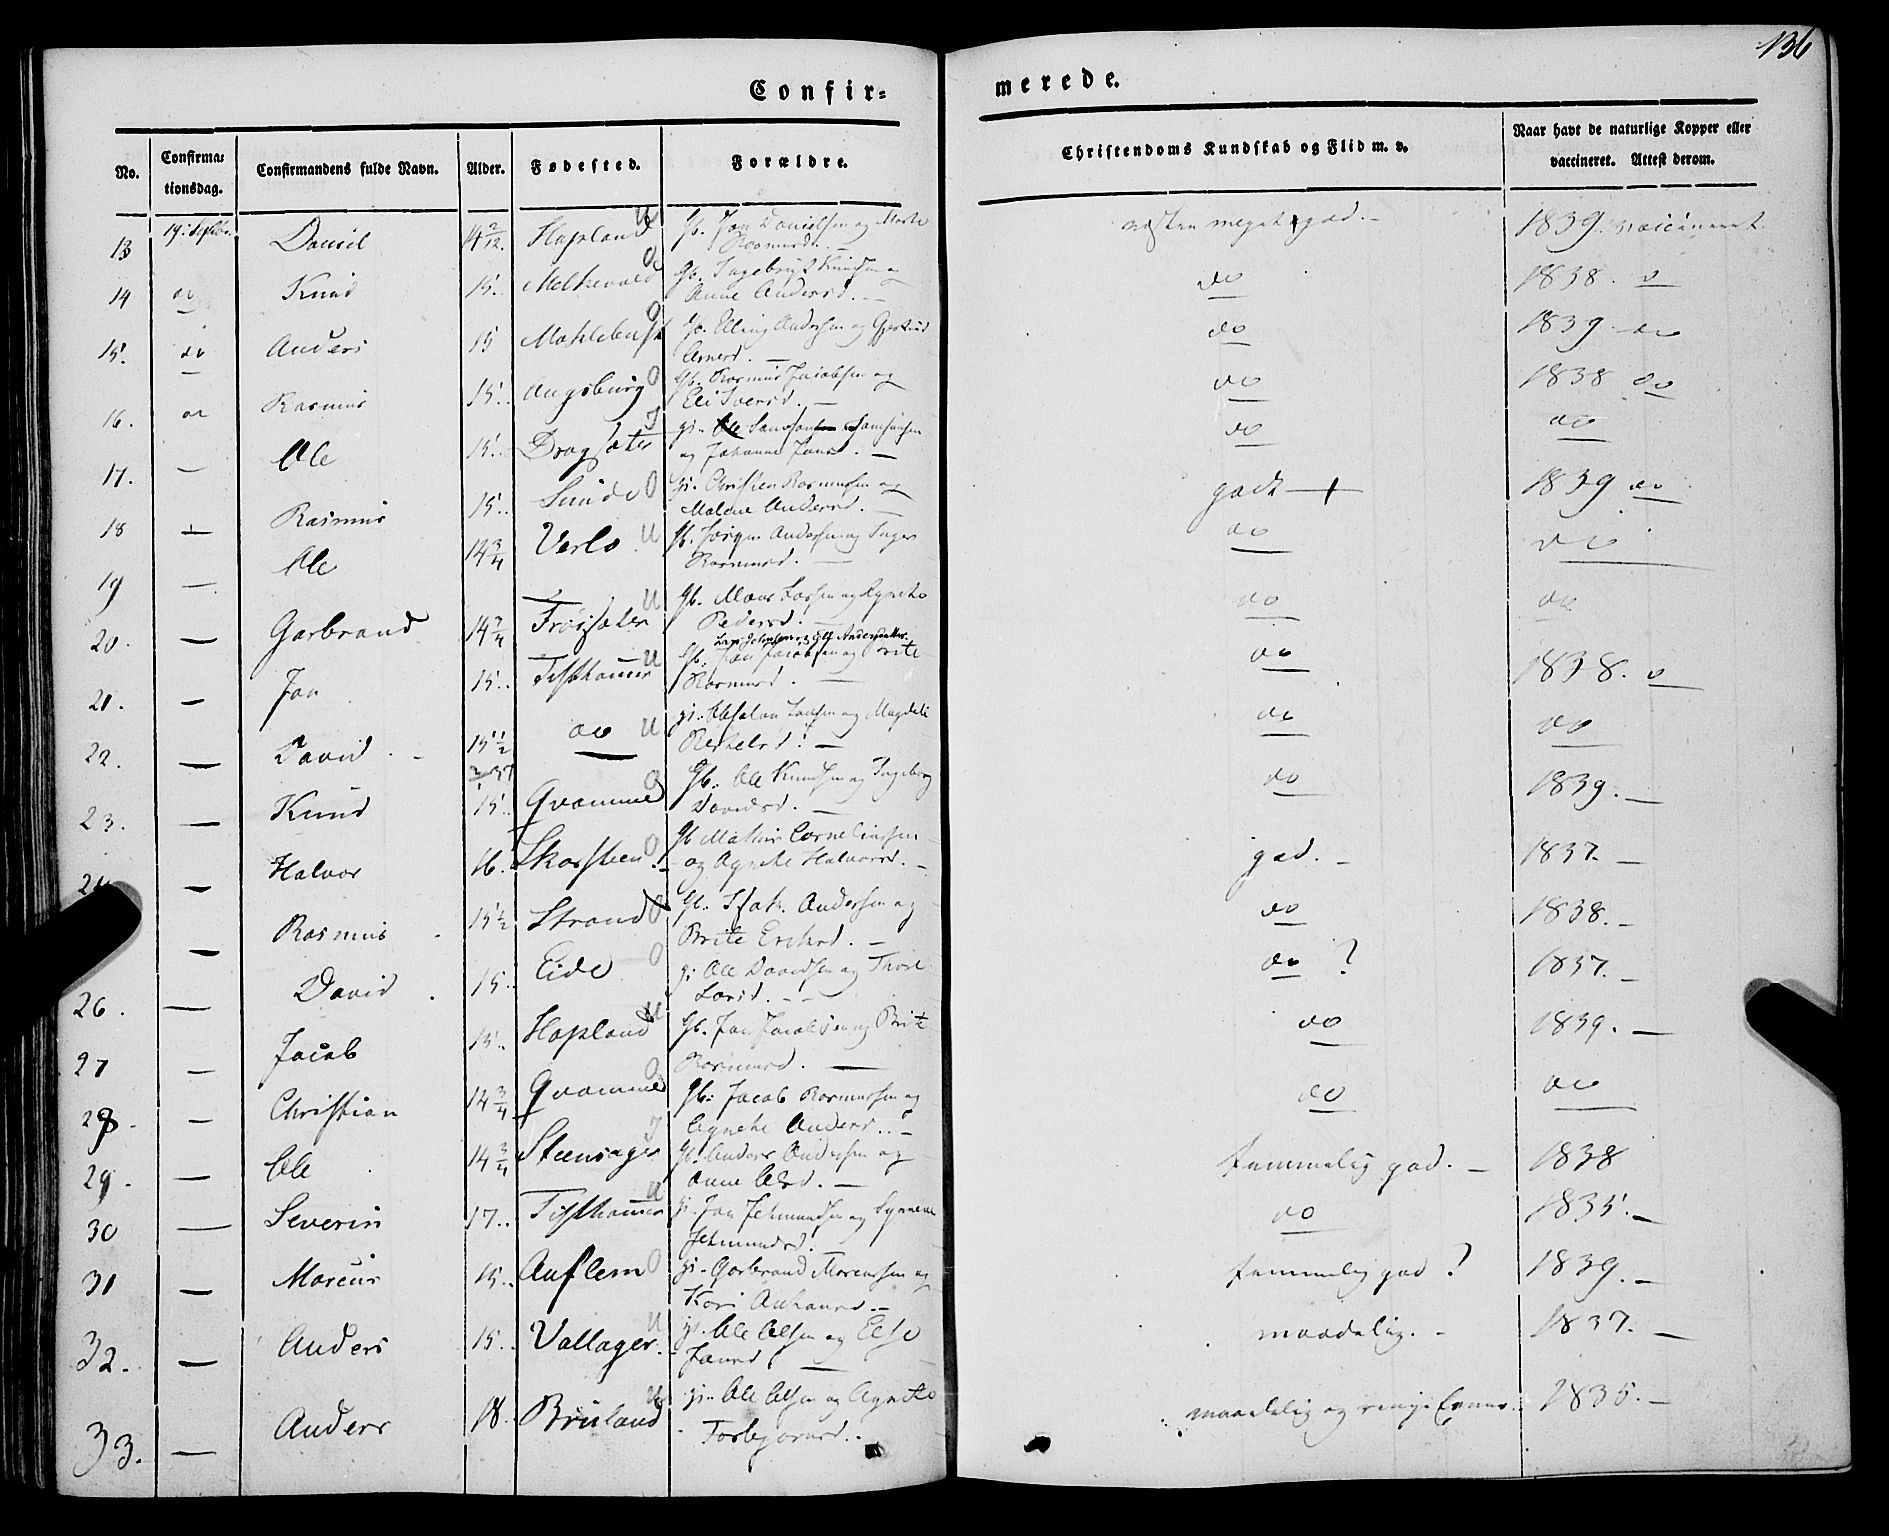 136
Confir= merede.
No. Confirma= tionsdag. Confirmandens fulde Navn. Alder. Fødested. Forældre. Christendoms Kundskab og Flid m. v. Naar havt de naturlige Kopper eller vaccineret. Attest derom.
13 19. Daniel 14 2/12. Hopland U Gb. Jon Danielsen og Rasmusd. næsten meget god. - 1839. vaccineret.
14 do Knud 15. O Gb. Ingebrigt Knudsen og Anne Andersd. - do 1838. do
15. do Anders 15 O Gb. Elling Andersen og Gjertrud do 1839 do
16. do Rasmus 15. Augsburg O Gb. Rasmus Jacobsen og Eli Iversd. - do 1838 do
17. — Ole 15. Dragsæter I og Johanne Jonsd. — do do
18 — Rasmus 15. Sunde O gi. Christen Rasmussen og Malene Andersd. — godt 1839 do
19 — Ole 14 3/4 Verlo U Gb. Jørgen Andersen og Inger Rasmusd. — do do
20. — Garbrand 14 3/4 Frøisæter U Gb. Mons Larsen og Agnete Pedersd. — do do
21. — Jon 15. Tisthammer U Gb. Jon Jacobsen og Brite Rasmusd. — do 1838. do
22. — David 15 1/2 do U gi. Absalon Jonsen og Magdeli do do
23. — Knud 15. Qvamme O Gb. Ole Knudsen og Ingeborg Davidsd. — do 1839. —
24 — Halvor 16. Skarsteen O Gb Mathias Corneliussen og Agnete Halvorsd. — god. - 1837. —
— Rasmus 15 1/2 Strand O Gb. Isak Andersen og Brite Ericksd. — do 1838. -
26. — David 15. Eide O gi. Ole Davidsen og Larsd. - - do ? 1837. -
27 — Jacob 15. Hopland U Gb. Jon Jacobsen og Brite Rasmusd. — do 1839. —
28. — Christian 14 3/4 Qvamme O Gb. Jacob Rasmussen og Agnete Andersd. - do do
29. — Ole 14 3/4 Steensager I Gb. Anders Andersen og Anne Olsd. — temmelig god. - 1838
30 — Severin 17.. Tisthammer U gi. Jon Jetmundsen og Synneve Jetmundsd. do 1835. —
31 — Marcus 15.. Auflem O gi. Garbrand Marcussen og Kari Anthonsd. — temmelig god ? 1839. —
32. — Anders 15. Vallager. U gi. Ole Olsen og Else Jonsd — maadelig. - 1837. —
33. — Anders 18. Bruland U gi. Ole Olsen og Agnete Torbjørnsd. - maadelig og ringe Evner. 1835. —